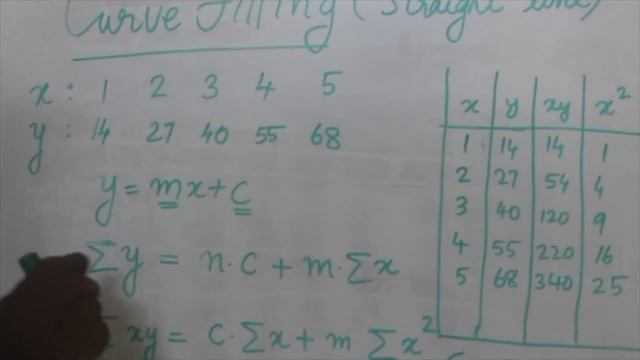 Curve Fitting (Straight line)
x : 1 2 3 4 5
y : 14 27 40 55 68
y = mx + c
Σy = n·c + m·Σx
Σxy = c·Σx + m Σx²
x y xy x²
1 14 14 1
2 27 54 4
3 40 120 9
4 55 220 16
5 68 340 25